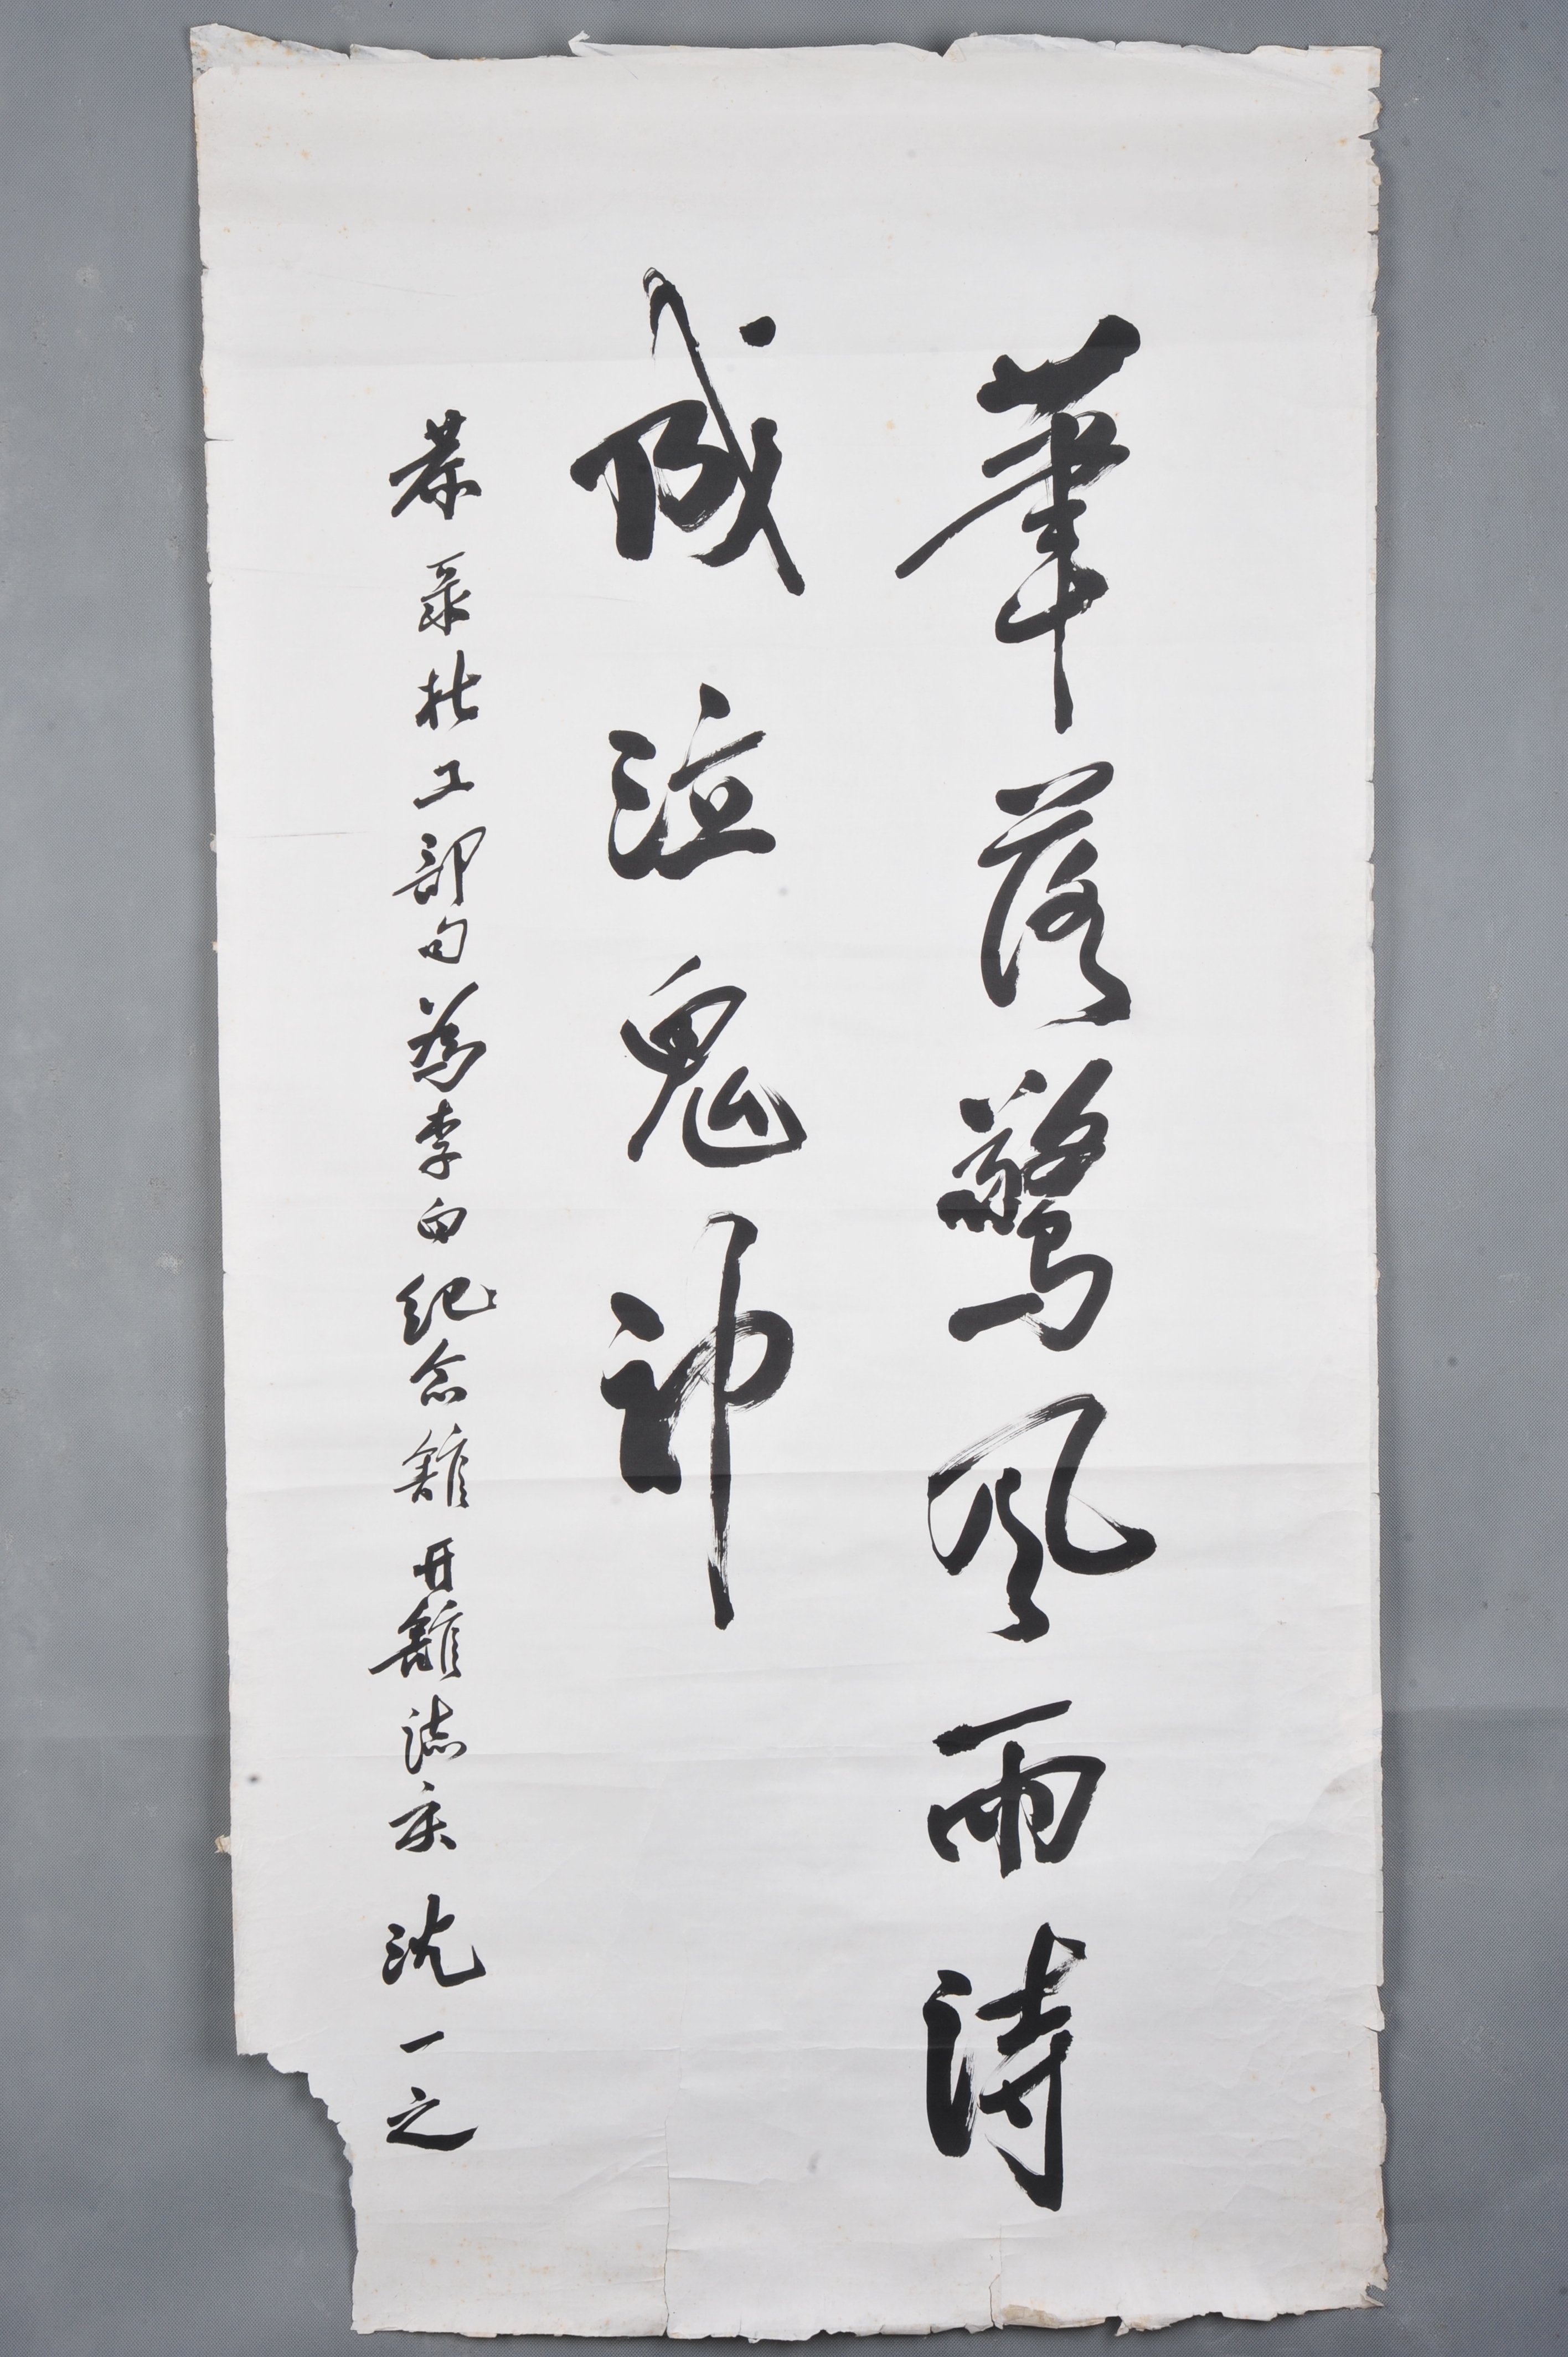 筆落驚風雨詩
成泣鬼神
恭录杜工部句為李白纪念館开館誌庆 沈一之